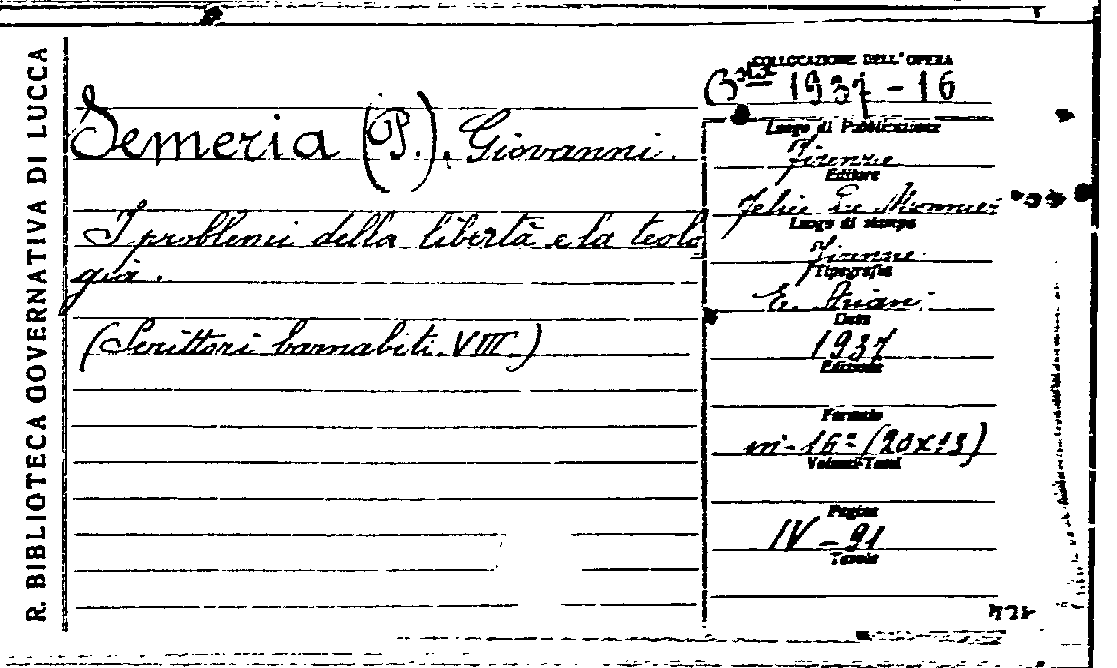 R. BIBLIOTECA GOVERNATIVA DI LUCCA
Semeria (P.). Giovanni.
I problemi della libertà e la teolo
gia.
(Scrittori barnabiti. VIII.)
COLLOCAZIONE DELL'OPERA
1937 - 16
Luogo di Pubblicazione
Firenze
Editore
Felice Le Monnier
Luogo di stampa
Firenze
Tipografia
E. Ariani
Data
1937
Edizione
Formato
in-16º (20x13)
Volumi-Tomi
Pagine
IV - 91
Tavole